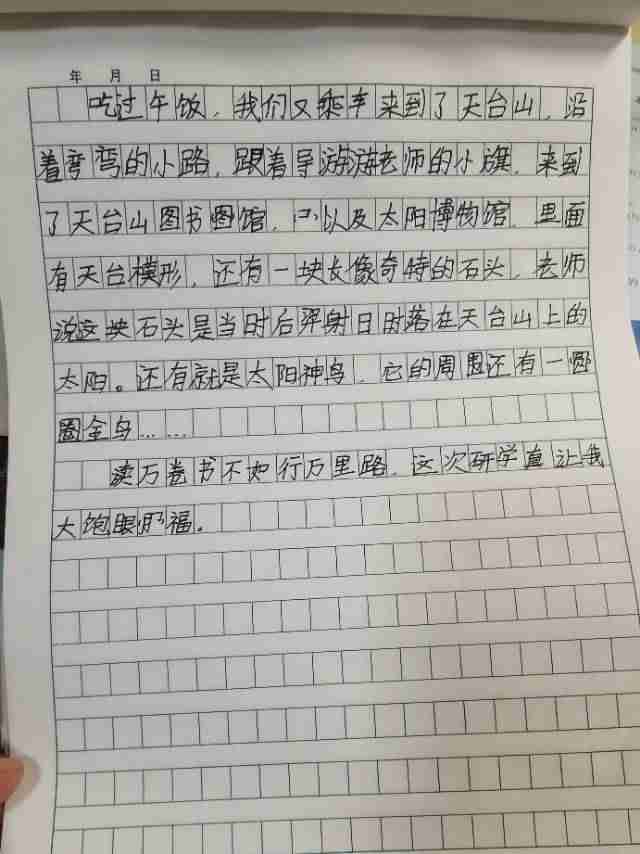 年 月 日
吃过午饭，我们又乘车来到了天台山，沿
着弯弯的小路，跟着导游游老师的小旗，来到
了天台山图书图馆，以及太阳博物馆，里面
有天台模形，还有一块长像奇特的石头，老师
说这块石头是当时后羿射日时落在天台山上的
太阳。还有就是太阳神鸟，它的周围还有一圈
圈金鸟……
读万卷书不如行万里路，这次研学真让我
大饱眼福。